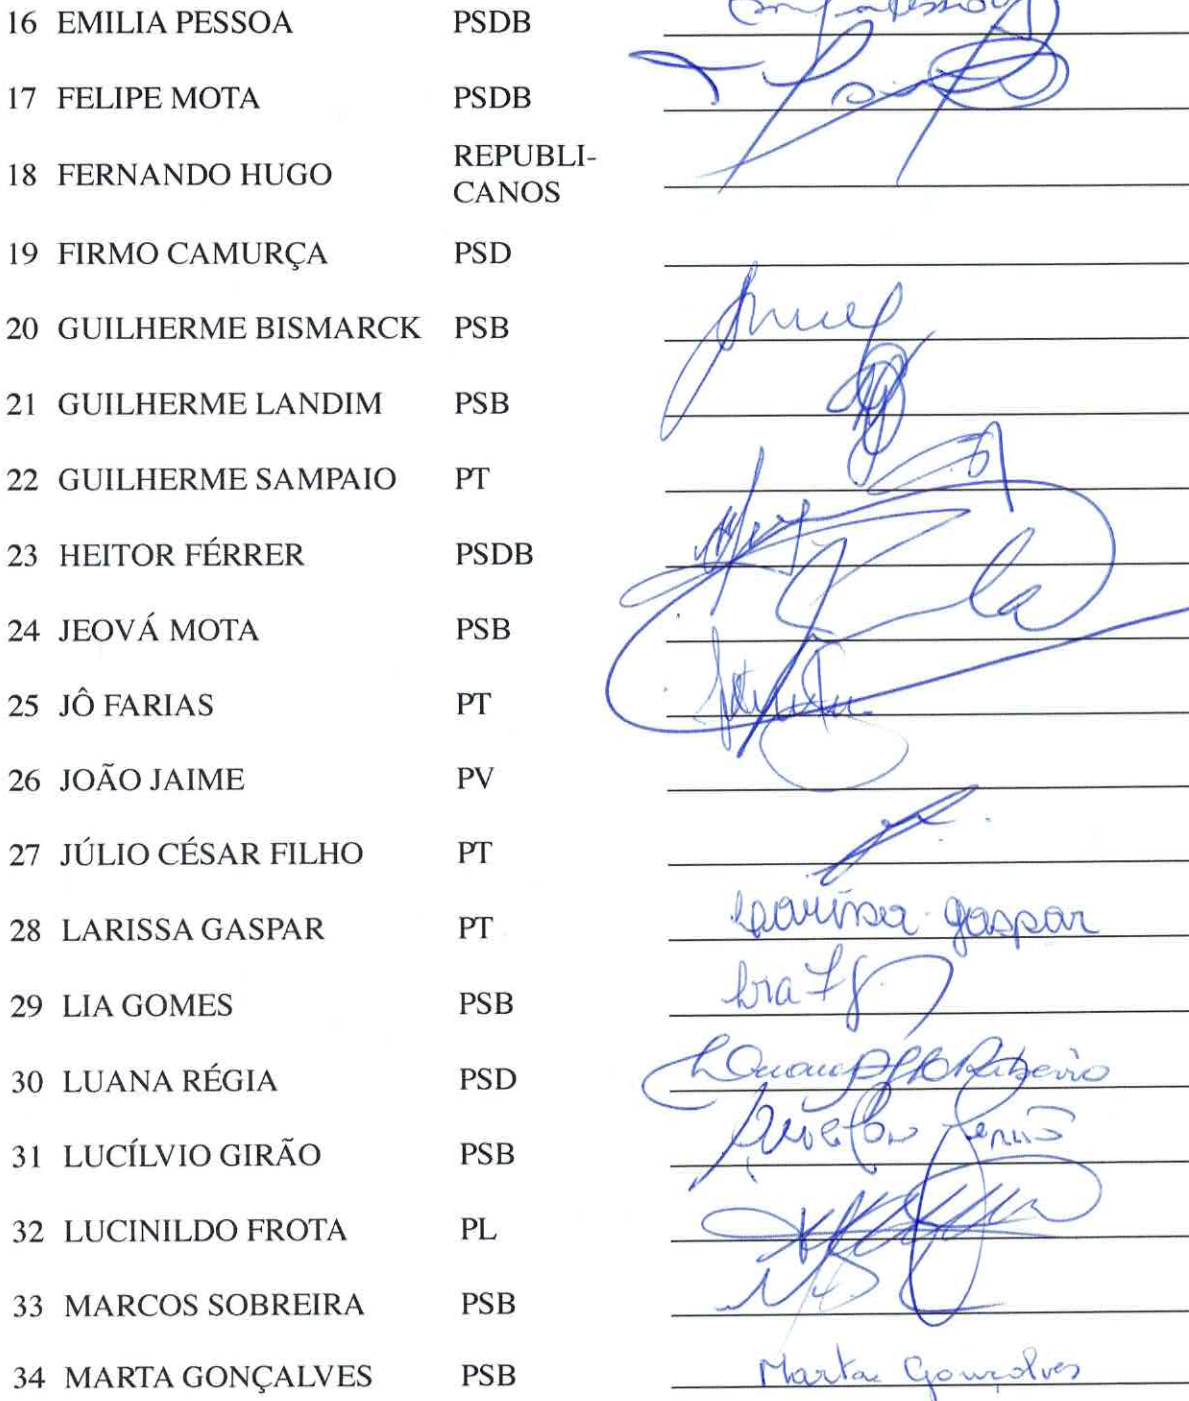 16 EMILIA PESSOA PSDB
17 FELIPE MOTA PSDB
18 FERNANDO HUGO REPUBLI-
CANOS
19 FIRMO CAMURÇA PSD
20 GUILHERME BISMARCK PSB
21 GUILHERME LANDIM PSB
22 GUILHERME SAMPAIO PT
23 HEITOR FÉRRER PSDB
24 JEOVÁ MOTA PSB
25 JÔ FARIAS PT
26 JOÃO JAIME PV
27 JÚLIO CÉSAR FILHO PT
28 LARISSA GASPAR PT Larissa Gaspar
29 LIA GOMES PSB
30 LUANA RÉGIA PSD Ribeiro
31 LUCÍLVIO GIRÃO PSB
32 LUCINILDO FROTA PL
33 MARCOS SOBREIRA PSB
34 MARTA GONÇALVES PSB Marta Gonçalves